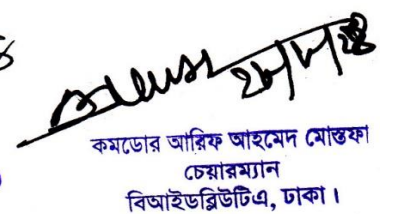 কমডোর আরিফ আহমেদ মোস্তফা
চেয়ারম্যান
বিআইডব্লিউটিএ, ঢাকা।